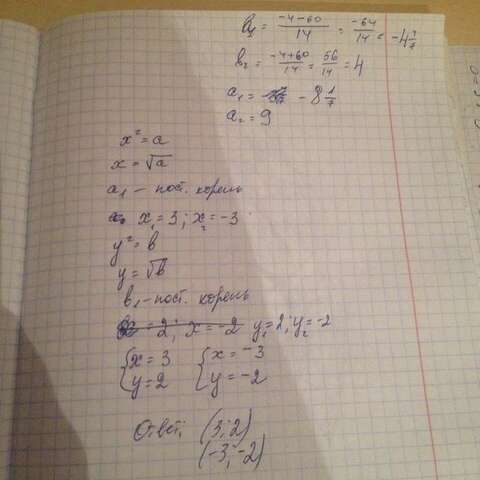 b₁ = (-4-60)/14 = -64/14 = -4 4/7
b₂ = (-4+60)/14 = 56/14 = 4
a₁ = -8 1/7
a₂ = 9
x² = a
x = √a
a₁ - пост. корень
x₁ = 3; x₂ = -3
y² = b
y = √b
b₁ - пост. корень
= 2; x = -2 y₁ = 2; y₂ = -2
{x = 3 {x = -3
{y = 2 {y = -2
Ответ: (3; 2)
(-3; -2)